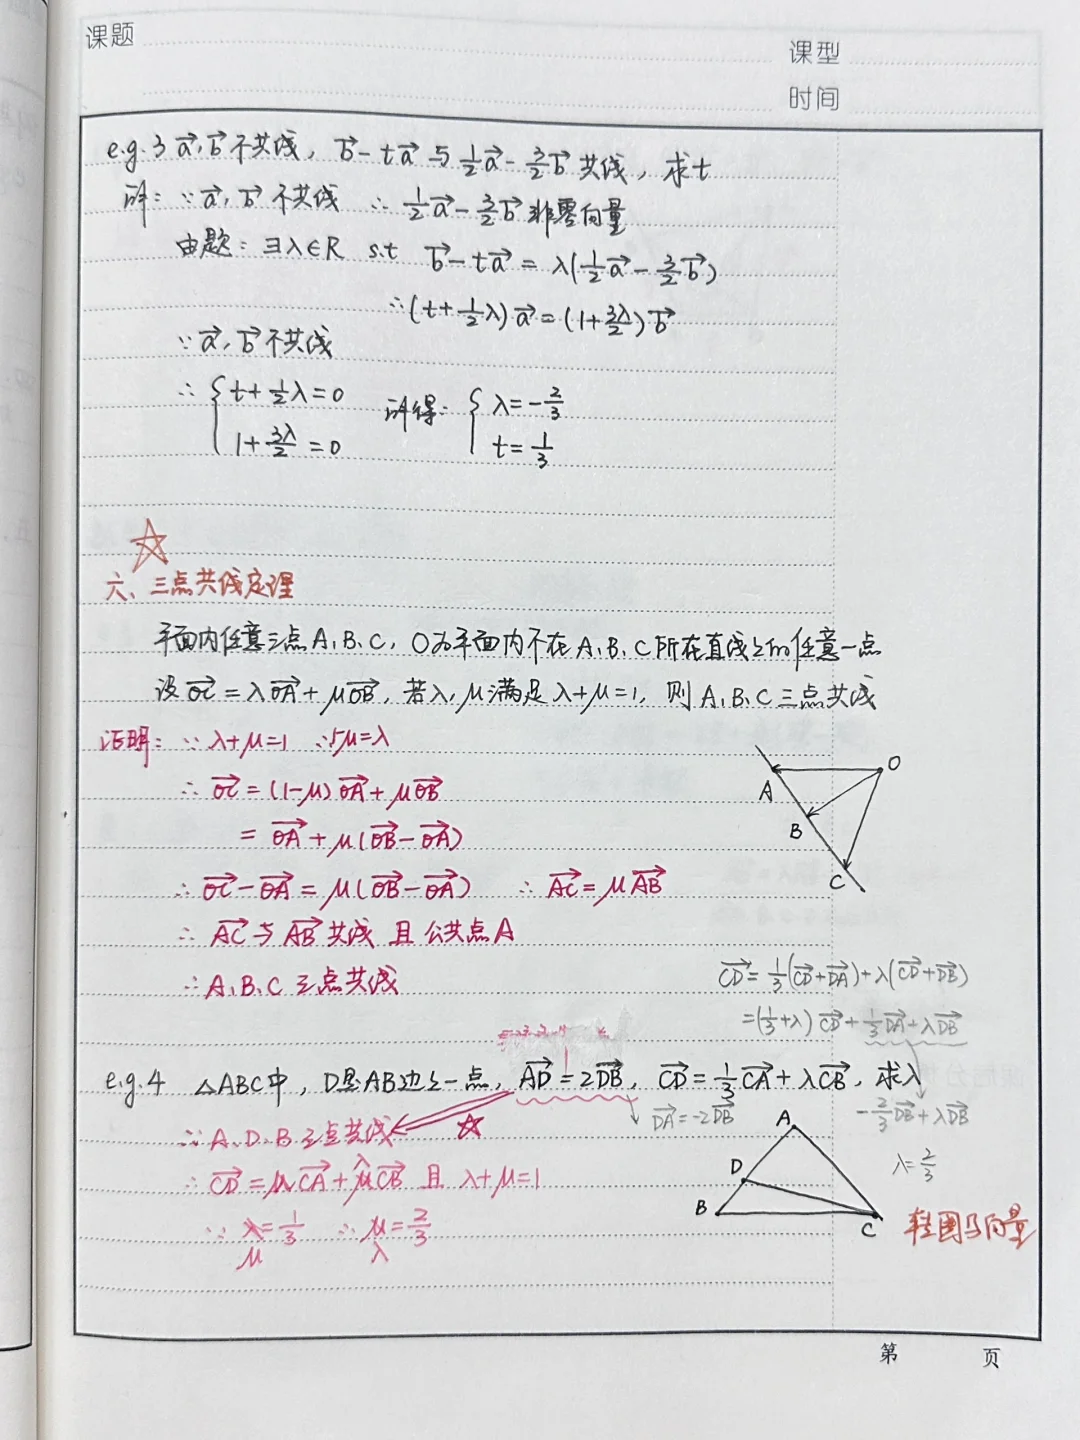 课题
课型
时间
e.g.3 a⃗, b⃗ 不共线, b⃗ - ta⃗ 与 1/2 a⃗ - 3/2 b⃗ 共线, 求t
解: ∵ a⃗, b⃗ 不共线 ∴ 1/2 a⃗ - 3/2 b⃗ 非零向量
由题: ∃λ∈R s.t b⃗ - ta⃗ = λ(1/2 a⃗ - 3/2 b⃗)
∴ (t + 1/2 λ) a⃗ = (1 + 3λ/2) b⃗
∵ a⃗, b⃗ 不共线
∴ { t + 1/2 λ = 0 解得: { λ = -2/3
1 + 3λ/2 = 0 t = 1/3
☆
六、三点共线定理
平面内任意三点A、B、C, O为平面内不在A、B、C所在直线上的任意一点
设OC⃗ = λOA⃗ + μOB⃗, 若λ, μ满足λ+μ=1, 则A、B、C三点共线
证明: ∵ λ+μ=1 ∴1-μ=λ
∴ OC⃗ = (1-μ)OA⃗ + μOB⃗
= OA⃗ + μ(OB⃗ - OA⃗)
∴ OC⃗ - OA⃗ = μ(OB⃗ - OA⃗) ∴ AC⃗ = μAB⃗
∴ AC⃗ 与 AB⃗ 共线 且 公共点A
∴ A、B、C 三点共线
O
A
B
C
CD⃗ = 1/3(CD⃗ + DA⃗) + λ(CD⃗ + DB⃗)
= (1/3 + λ) CD⃗ + 1/3 DA⃗ + λDB⃗
e.g.4 △ABC中, D是AB边上一点, AD⃗ = 2DB⃗, CD⃗ = 1/3 CA⃗ + λCB⃗, 求λ
DA⃗ = -2DB⃗
-2/3 DB⃗ + λDB⃗
λ = 2/3
∴ A、D、B三点共线 ☆
∴ CD⃗ = μCA⃗ + λCB⃗ 且 λ+μ=1
∵ μ = 1/3 ∴ λ = 2/3
A
D
B
C
转图与向量
第 页